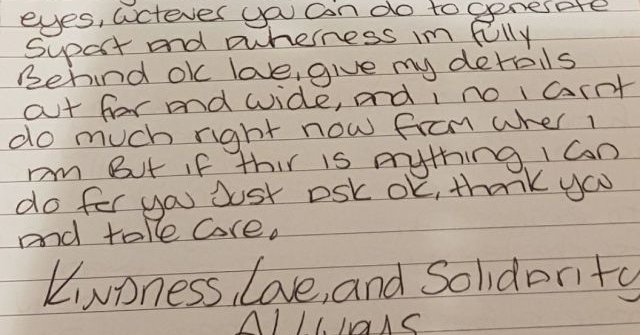 eyes, wctever ya can do to generate
Suport and awherness im fully
Behind ok love, give my details
out far and wide, and i no i carnt
do much right now from wher i
am But if thir is anything i can
do for you Just Ask ok, thank you
and take care.
KINDNess, Love, and Solidarity
Allways